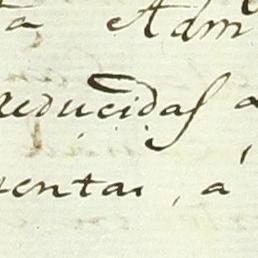 ta Adm
reducidas a
mentas, á